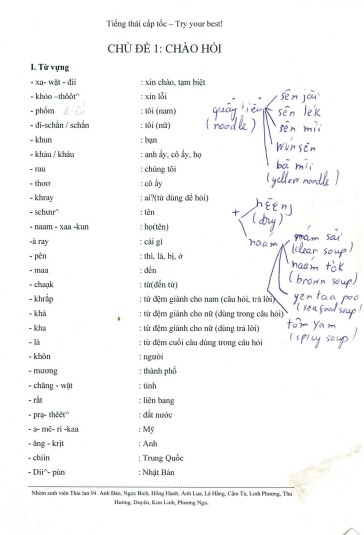 Tiếng thái cấp tốc – Try your best!
CHỦ ĐỀ 1: CHÀO HỎI
I. Từ vựng
- xa- wặt - đii : xin chào, tạm biệt
- khỏo –thôôt^ : xin lỗi
- phổm : tôi (nam)
- đi-schẳn / schẳn : tôi (nữ)
- khun : bạn
- kháu / kháu : anh ấy, cô ấy, họ
- rau : chúng tôi
- thơ : cô ấy
- khray : ai?(từ dùng để hỏi)
- schưư^ : tên
- naam - xaa -kun : họ(tên)
-à ray : cái gì
- pên : thì, là, bị, ở
- maa : đến
- chaạk : từ(đến từ)
- khrắp : từ đệm giành cho nam (câu hỏi, trả lời)
- khá : từ đệm giành cho nữ (dùng trong câu hỏi)
- kha : từ đệm giành cho nữ (dùng trả lời)
- là : từ đệm cuối câu dùng trong câu hỏi
- khôn : người
- mương : thành phố
- chăng - wặt : tỉnh
- rắt : liên bang
- prạ- thêêt^ : đất nước
- a- mê- ri -kaa : Mỹ
- ăng - krịt : Anh
- chiin : Trung Quốc
- Dii^- pùn : Nhật Bản
quấy tiểu
(noodle)
sên jài
sên lék
sên mìi
wún sên
bà mìi
(yellow noodle)
+ hêèng
(dry)
naám
naám sải
(clear soup)
naám tòk
(brown soup)
yen taa poo
(seafood soup)
tôm yam
(spicy soup)
Nhóm sinh viên Thái lan 04: Anh Đào, Ngọc Bích, Hồng Hạnh, Ánh Lụa, Lê Hằng, Cẩm Tú, Linh Phương, Thu
Hường, Duyên, Kim Linh, Phương Nga.